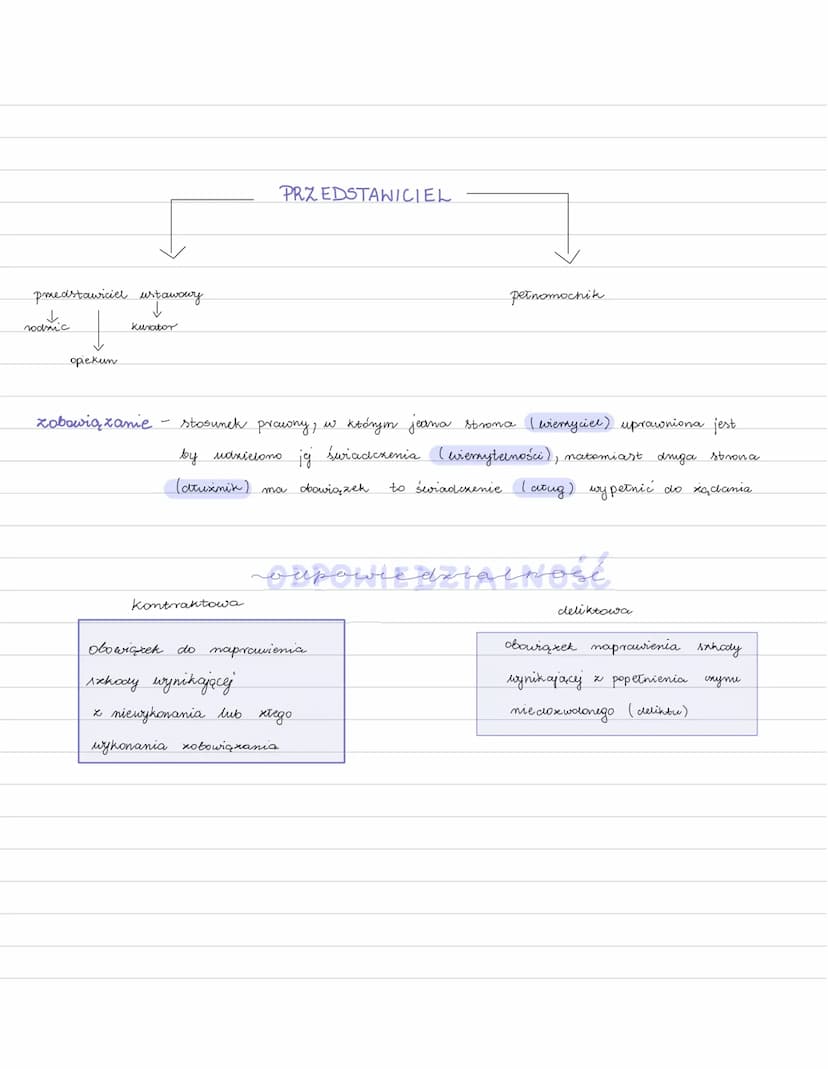 PRZEDSTAWICIEL
przedstawiciel ustawowy
pełnomocnik
rodzic
kurator
opiekun
zobowiązanie – stosunek prawny, w którym jedna strona (wierzyciel) uprawniona jest
by udzielono jej świadczenia (wierzytelności), natomiast druga strona
(dłużnik) ma obowiązek to świadczenie (dług) wypełnić do żądania
ODPOWIEDZIALNOŚĆ
odpowiedzialność
kontraktowa
deliktowa
obowiązek do naprawienia
szkody wynikającej
z niewykonania lub złego
wykonania zobowiązania
obowiązek naprawienia szkody
wynikającej z popełnienia czynu
niedozwolonego (deliktu)